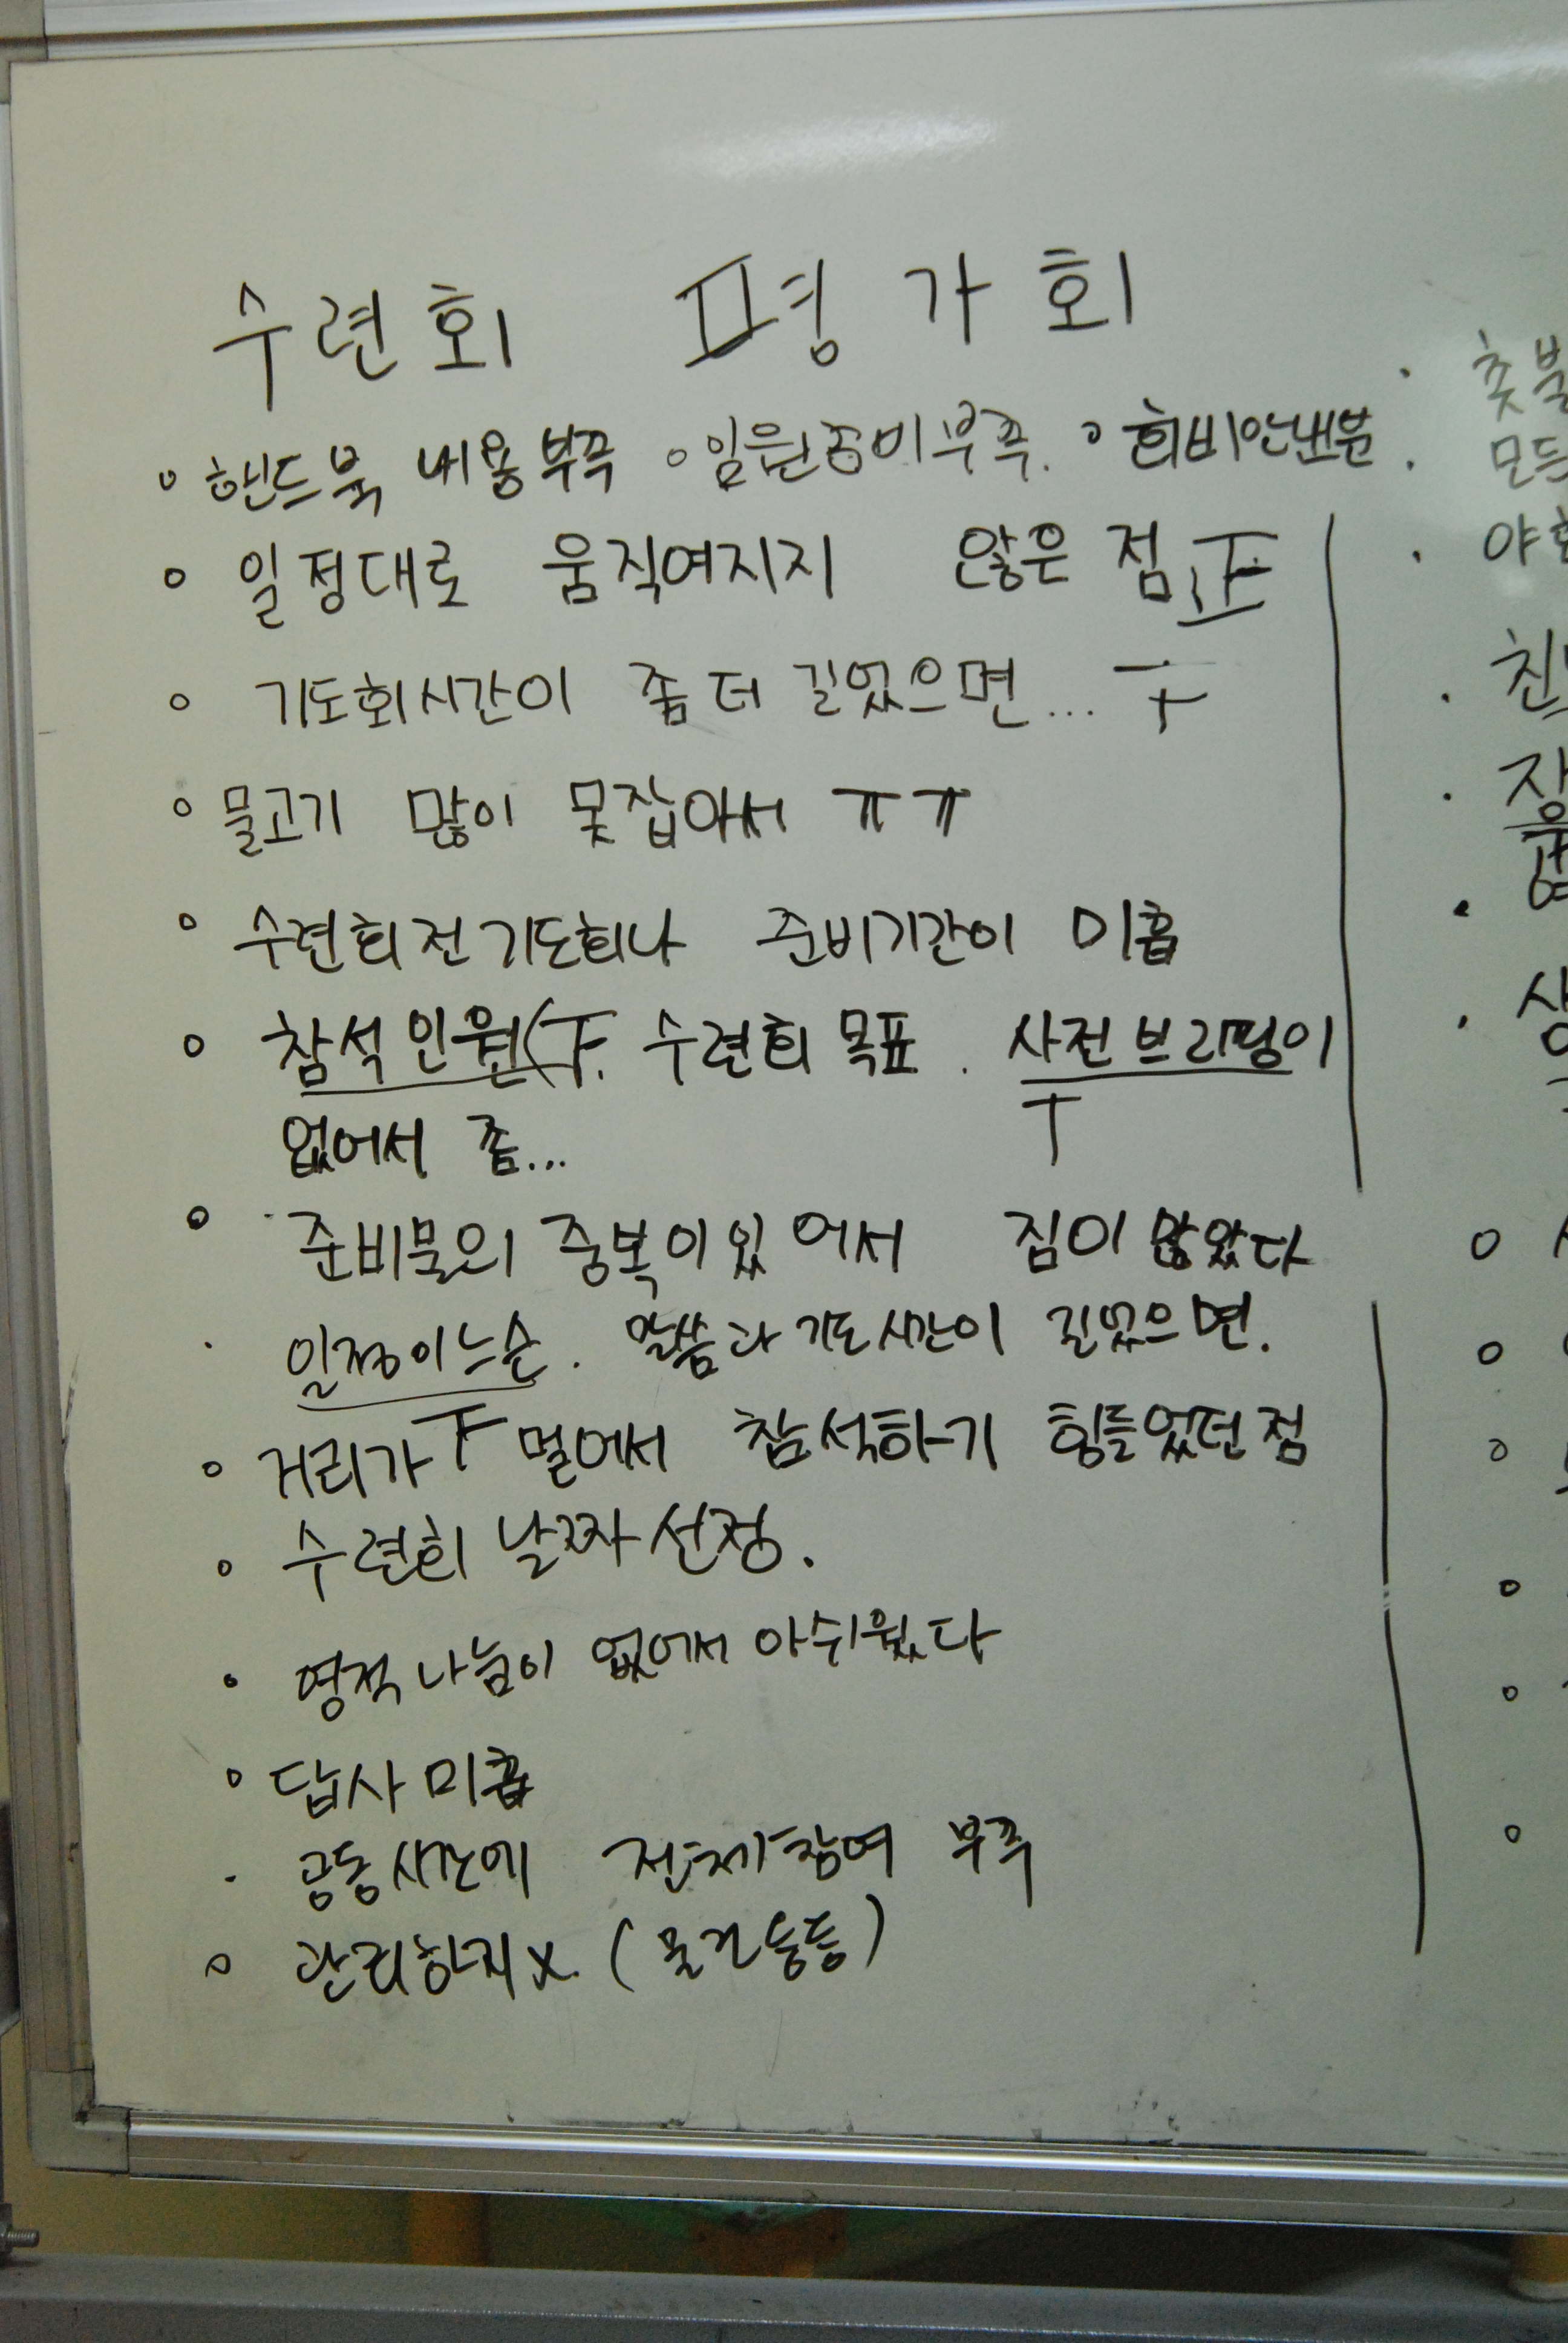 수련회 평가회
◦ 핸드북 내용부족 ◦ 임원준비부족. ◦ 회비안내문
◦ 일정대로 움직여지지 않은 점 正
◦ 기도회시간이 좀 더 길었으면... 
◦ 물고기 많이 못잡아서 ㅠㅠ
◦ 수련회전기도회나 준비기간이 미흡
◦ 참석인원( 수련회목표. 사전브리핑이
없어서 좀...
◦ 준비물의 중복이있어서 짐이 많았다
· 일정이느슨. 말씀과기도시간이 길었으면.
◦ 거리가 멀어서 참석하기 힘들었던점
◦ 수련회 날짜선정.
◦ 영적나눔이 없어서 아쉬웠다
◦ 답사미흡
· 공동시간에 전체참여 부족
◦ 관리하지x (물건등등)
촛불
모든